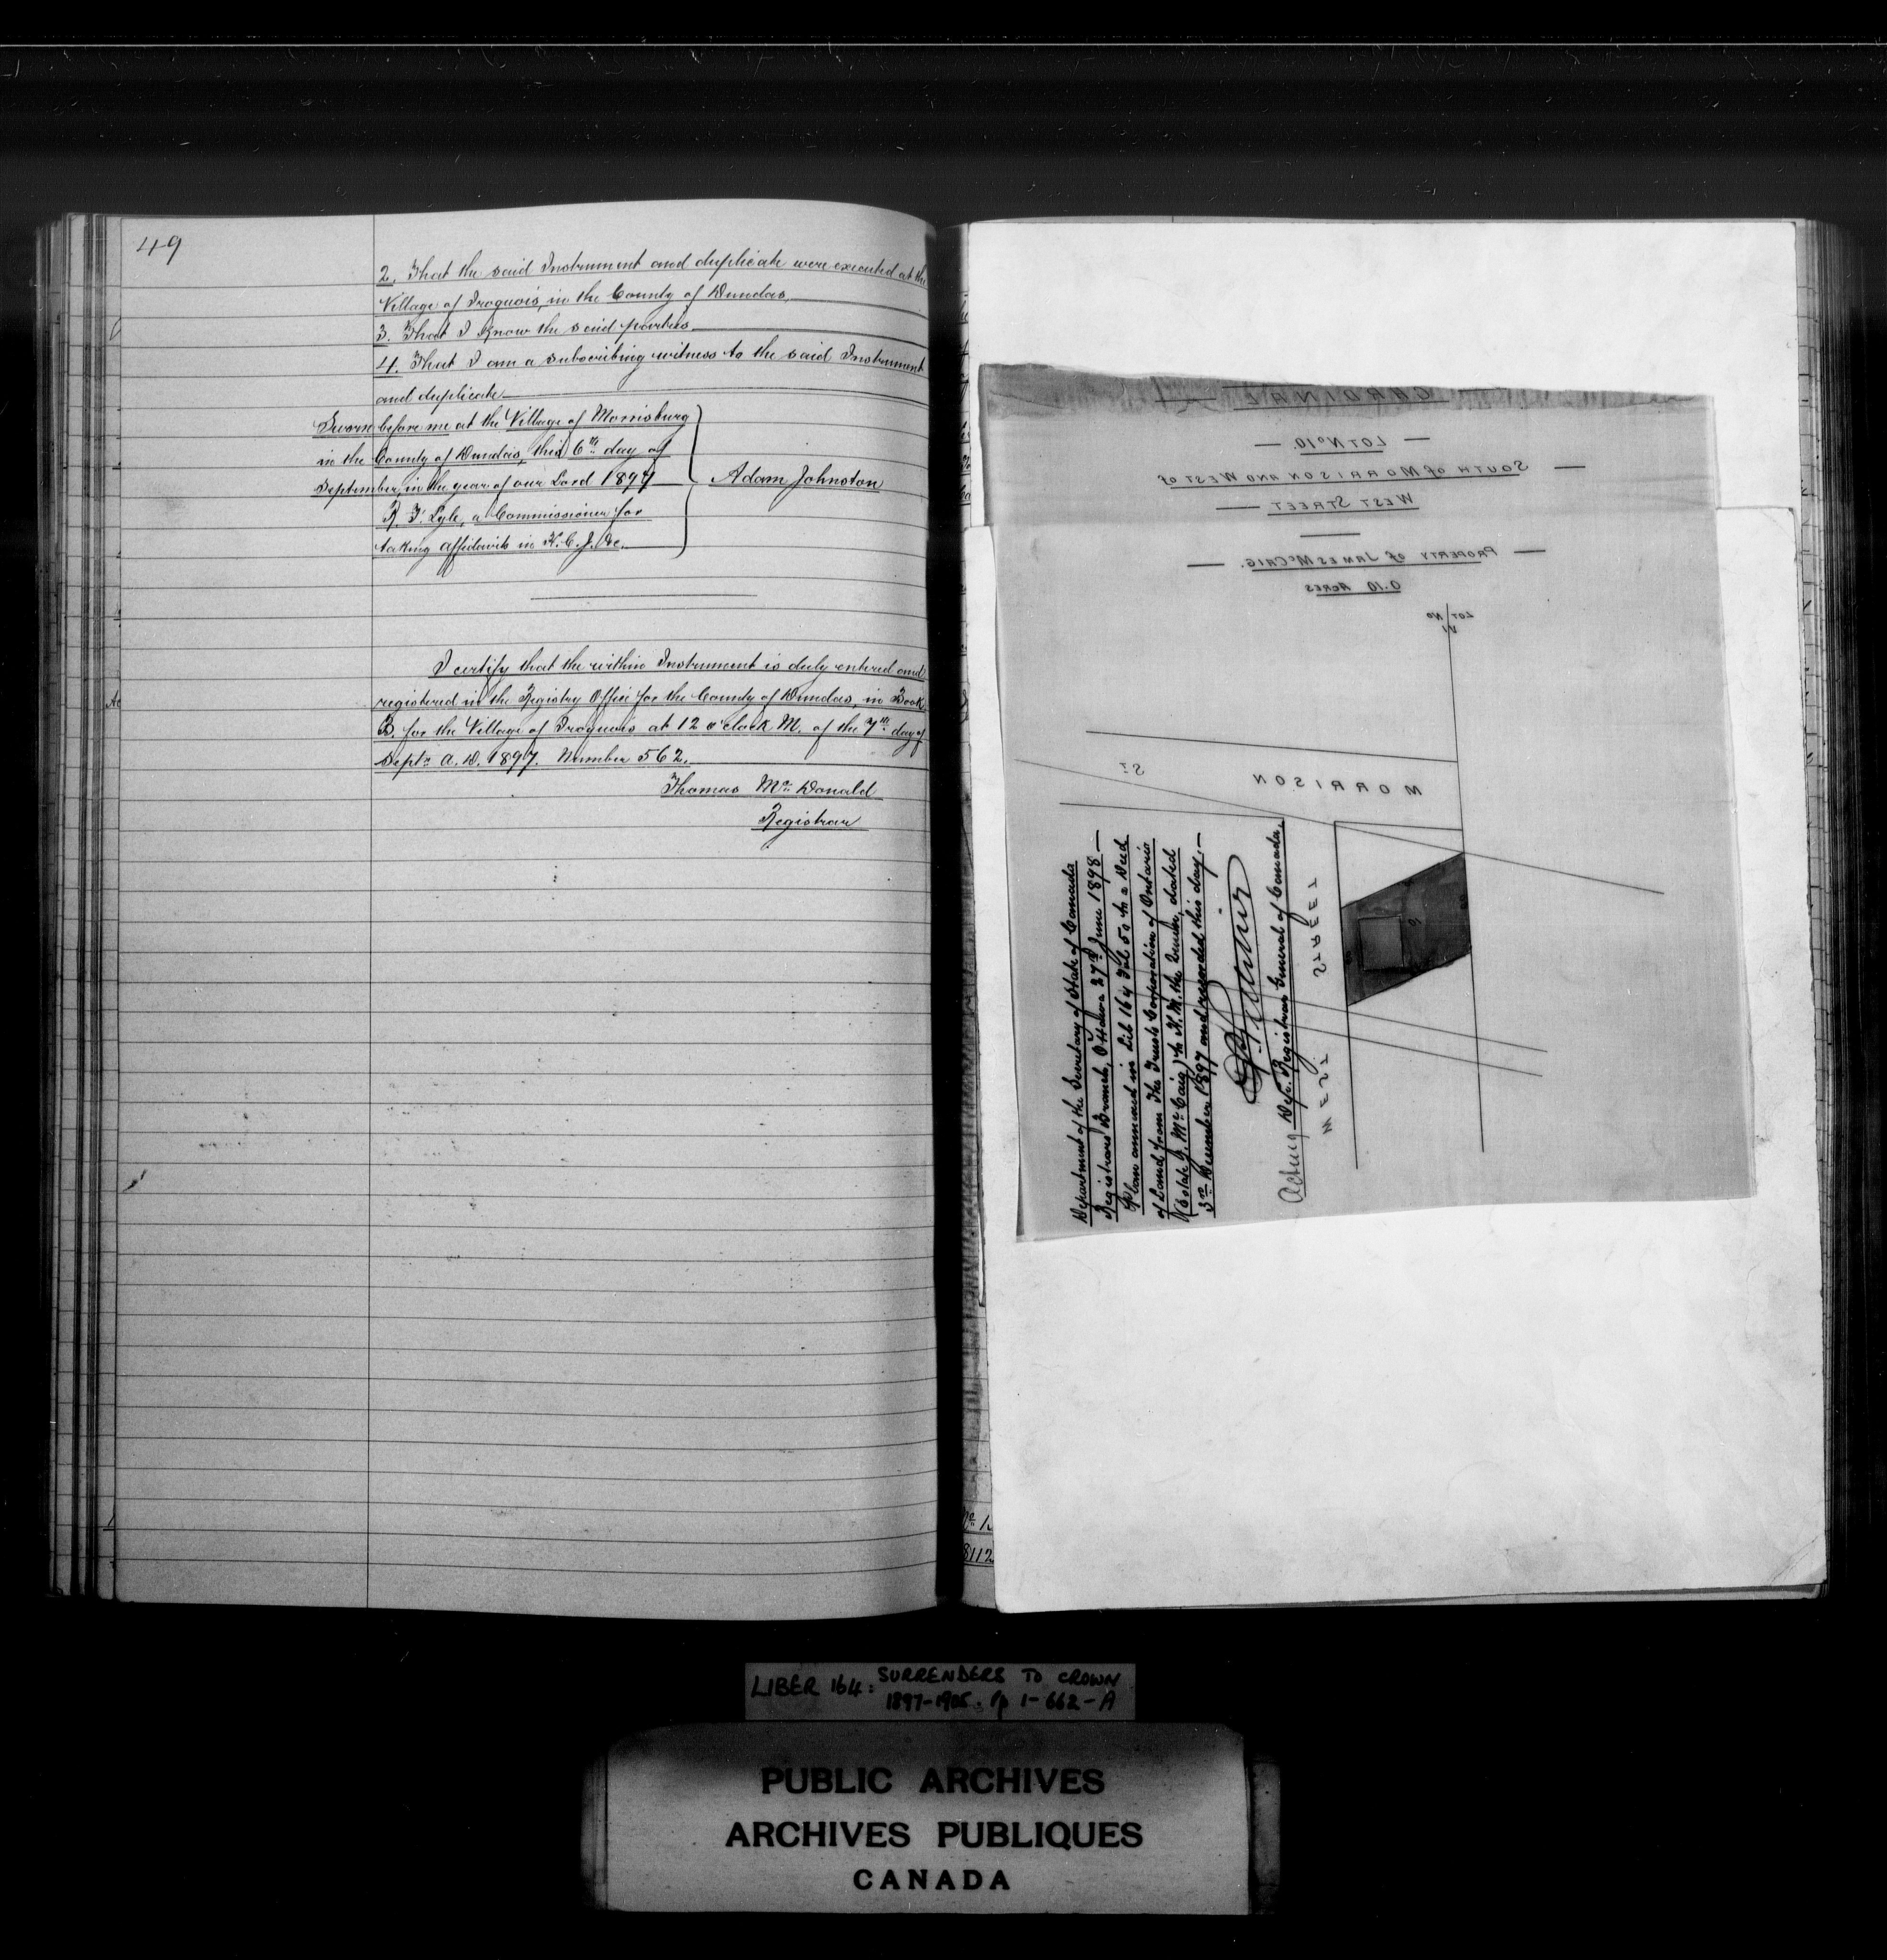 49
2. That the said Instrument and duplicate were executed at the
Village of Iroquois, in the County of Dundas.
3. That I know the said parties
4. That I am a subscribing witness to the said Instrument
and duplicate
Sworn before me at the Village of Morrisburg
in the County of Dundas, this 6th day of
September, in the year of our Lord 1897
Adam Johnston
R. F. Lyle, a Commissioner for
taking affidavits in H. C. J. &c.
I certify that the within Instrument is duly entered and
registered in the Registry Office for the County of Dundas, in Book
B. for the Village of Iroquois at 12 o'clock M. of the 7th day of
Septr. A. D. 1897. Number 562.
Thomas McDonald
Registrar
CARDINAL
LOT No 10.
SOUTH of MORRISON AND WEST of
WEST STREET
PROPERTY of JAMES McCAIG.
0.10 ACRES
LOT No
VI
MORRISON ST
WEST STREET
10
Department of the Secretary of State of Canada
Registrar's Branch, Ottawa 27th June 1898
Plan annexed in Lib 164 Fol 50 to a Deed
of Land from The Trusts Corporation of Ontario
(Estate J. McCaig) to H. M. the Queen, dated
3rd December 1897 and recorded this day.
Acting Dep. Registrar General of Canada.
No 1
8112
LIBER 164: SURRENDERS TO CROWN
1897-1905. Pp 1-662-A
PUBLIC ARCHIVES
ARCHIVES PUBLIQUES
CANADA